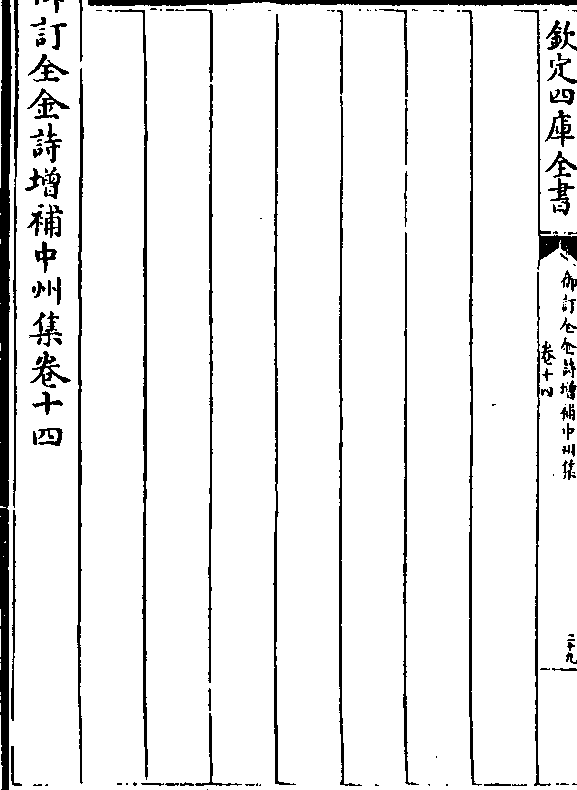 欽定四庫全書
御訂全金詩增補中州集
卷十四
二十九
御訂全金詩增補中州集卷十四